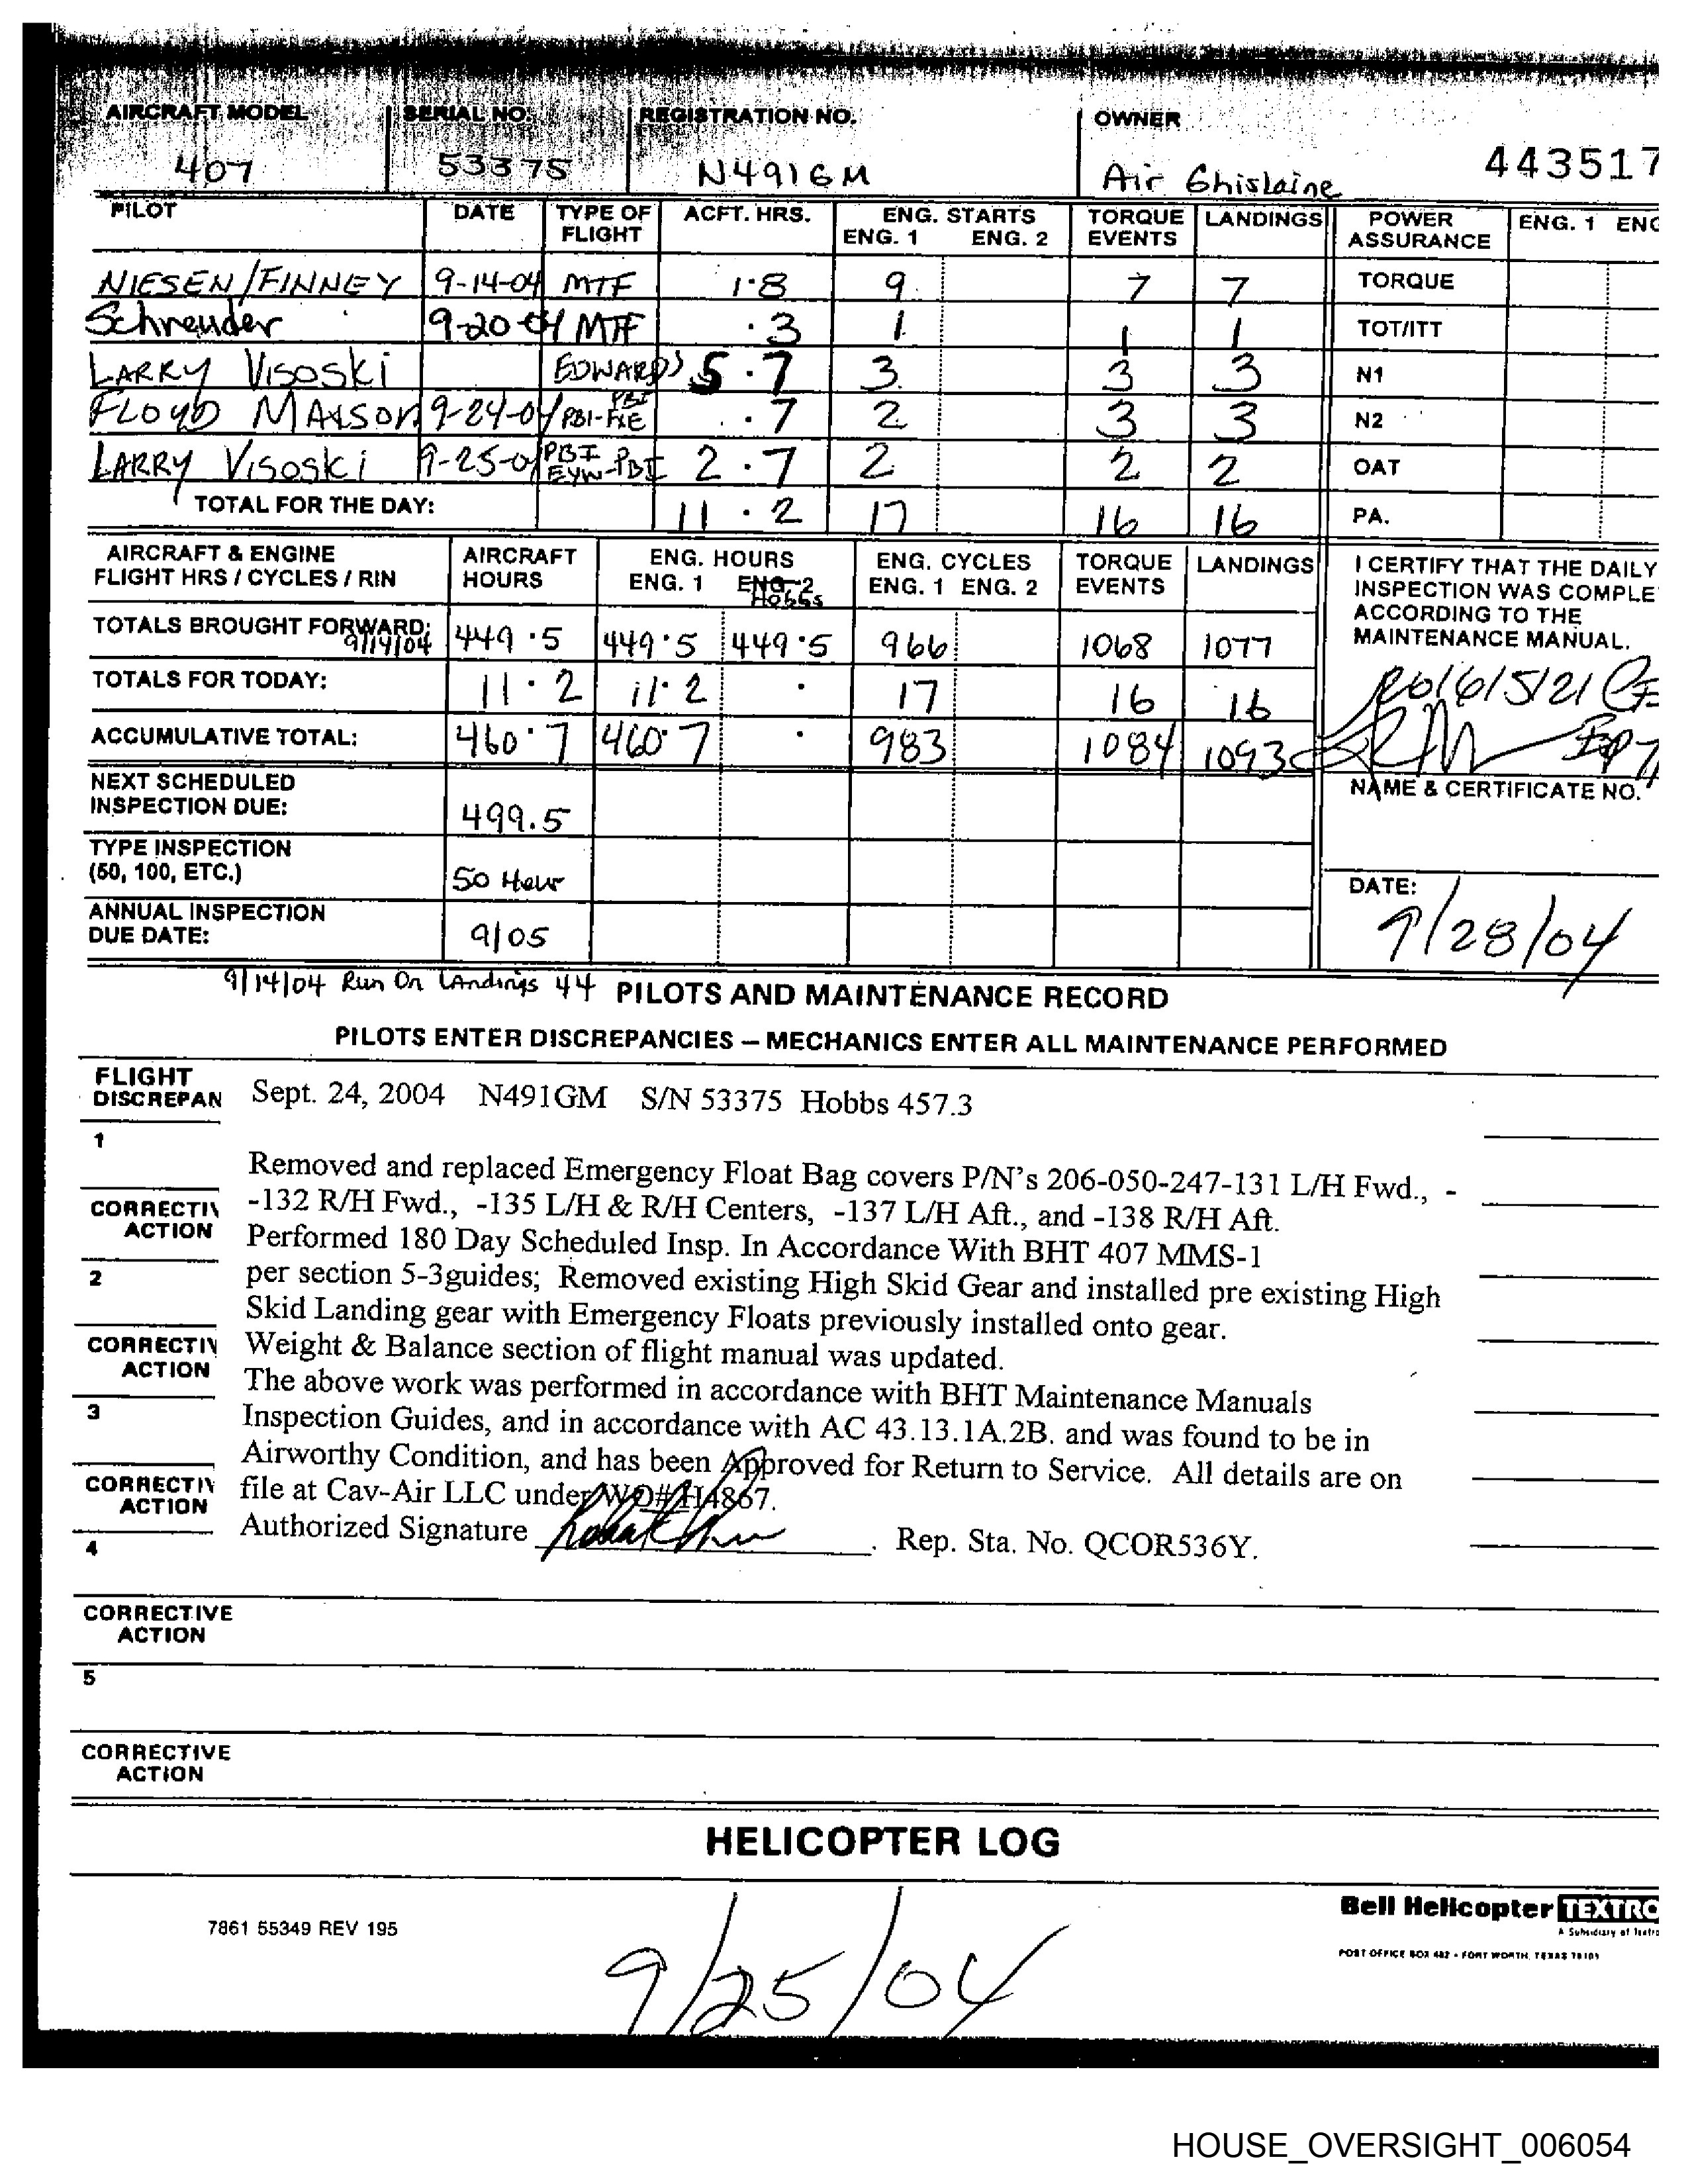 AIRCRAFT MODEL SERIAL NO. REGISTRATION NO. OWNER
407 53375 N491GM Air Ghislaine 443517
PILOT DATE TYPE OF FLIGHT ACFT. HRS. ENG. STARTS ENG. 1 ENG. 2 TORQUE EVENTS LANDINGS POWER ASSURANCE ENG. 1 ENG
NIESEN/FINNEY 9-14-04 MTF 1.8 9 7 7 TORQUE
Schreuder 9-20-04 MTF .3 1 1 1 TOT/ITT
LARRY Visoski EDWARDS 5.7 3 3 3 N1
FLOYD 9-24-04 PBI-FXE PBI .7 2 3 3 N2
LARRY Visoski 9-25-04 PBI EYW-PBI 2.7 2 2 2 OAT
TOTAL FOR THE DAY: 11.2 17 16 16 PA.
AIRCRAFT & ENGINE FLIGHT HRS / CYCLES / RIN AIRCRAFT HOURS ENG. HOURS ENG. 1 ENG. 2 Hobbs ENG. CYCLES ENG. 1 ENG. 2 TORQUE EVENTS LANDINGS
I CERTIFY THAT THE DAILY
INSPECTION WAS COMPLE
ACCORDING TO THE
MAINTENANCE MANUAL.
TOTALS BROUGHT FORWARD: 9/14/04 449.5 449.5 449.5 966 1068 1077
TOTALS FOR TODAY: 11.2 11.2 . 17 16 16
ACCUMULATIVE TOTAL: 460.7 460.7 . 983 1084 1093
NAME & CERTIFICATE NO.
NEXT SCHEDULED
INSPECTION DUE: 499.5
TYPE INSPECTION
(50, 100, ETC.) 50 Hour
DATE:
9/28/04
ANNUAL INSPECTION
DUE DATE: 9/05
9/14/04 Run On Landings 44 PILOTS AND MAINTENANCE RECORD
PILOTS ENTER DISCREPANCIES – MECHANICS ENTER ALL MAINTENANCE PERFORMED
FLIGHT
DISCREPAN
Sept. 24, 2004 N491GM S/N 53375 Hobbs 457.3
1
Removed and replaced Emergency Float Bag covers P/N's 206-050-247-131 L/H Fwd., -
CORRECTIV
ACTION
-132 R/H Fwd., -135 L/H & R/H Centers, -137 L/H Aft., and -138 R/H Aft.
Performed 180 Day Scheduled Insp. In Accordance With BHT 407 MMS-1
2
per section 5-3guides; Removed existing High Skid Gear and installed pre existing High
Skid Landing gear with Emergency Floats previously installed onto gear.
CORRECTIV
ACTION
Weight & Balance section of flight manual was updated.
The above work was performed in accordance with BHT Maintenance Manuals
3
Inspection Guides, and in accordance with AC 43.13.1A.2B. and was found to be in
Airworthy Condition, and has been Approved for Return to Service. All details are on
CORRECTIV
ACTION
file at Cav-Air LLC under WO# H4867.
Authorized Signature . Rep. Sta. No. QCOR536Y.
4
CORRECTIVE
ACTION
5
CORRECTIVE
ACTION
HELICOPTER LOG
7861 55349 REV 195
Bell Helicopter TEXTRO
A Subsidiary of Textro
POST OFFICE BOX 482 • FORT WORTH, TEXAS 76101
9/25/04
HOUSE_OVERSIGHT_006054